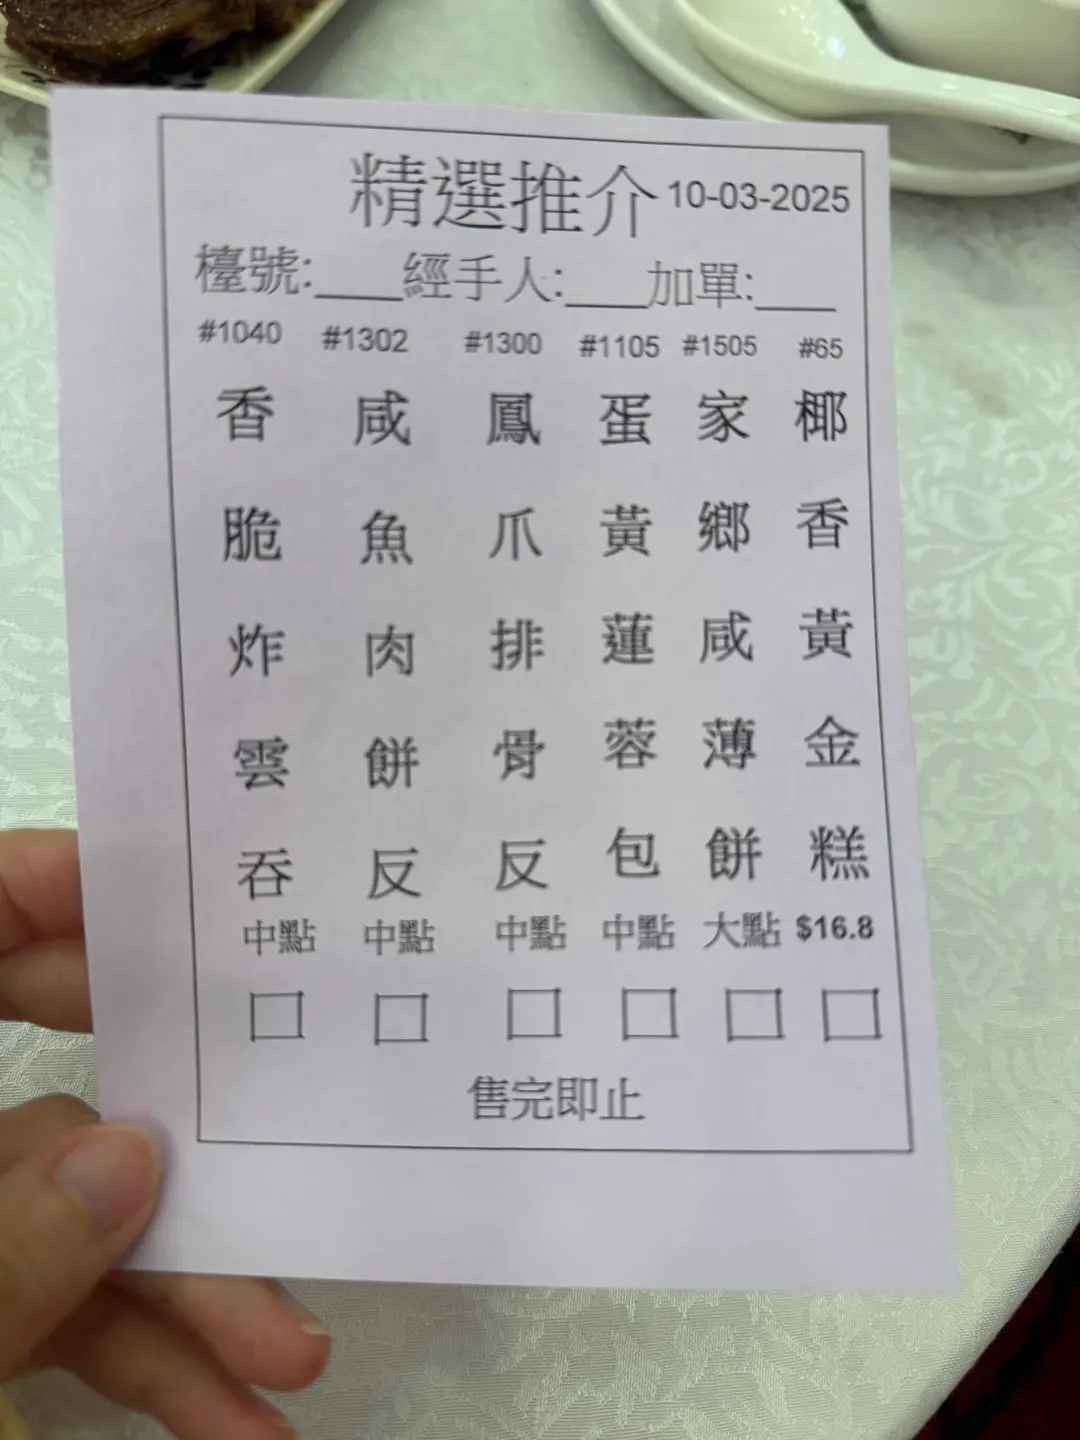 精選推介 10-03-2025
檯號:___經手人:___加單:___
#1040 #1302 #1300 #1105 #1505 #65
香脆炸雲吞
咸魚肉餅反
鳳爪排骨反
蛋黃蓮蓉包
家鄉咸薄餅
椰香黃金糕
中點 中點 中點 中點 大點 $16.8
售完即止